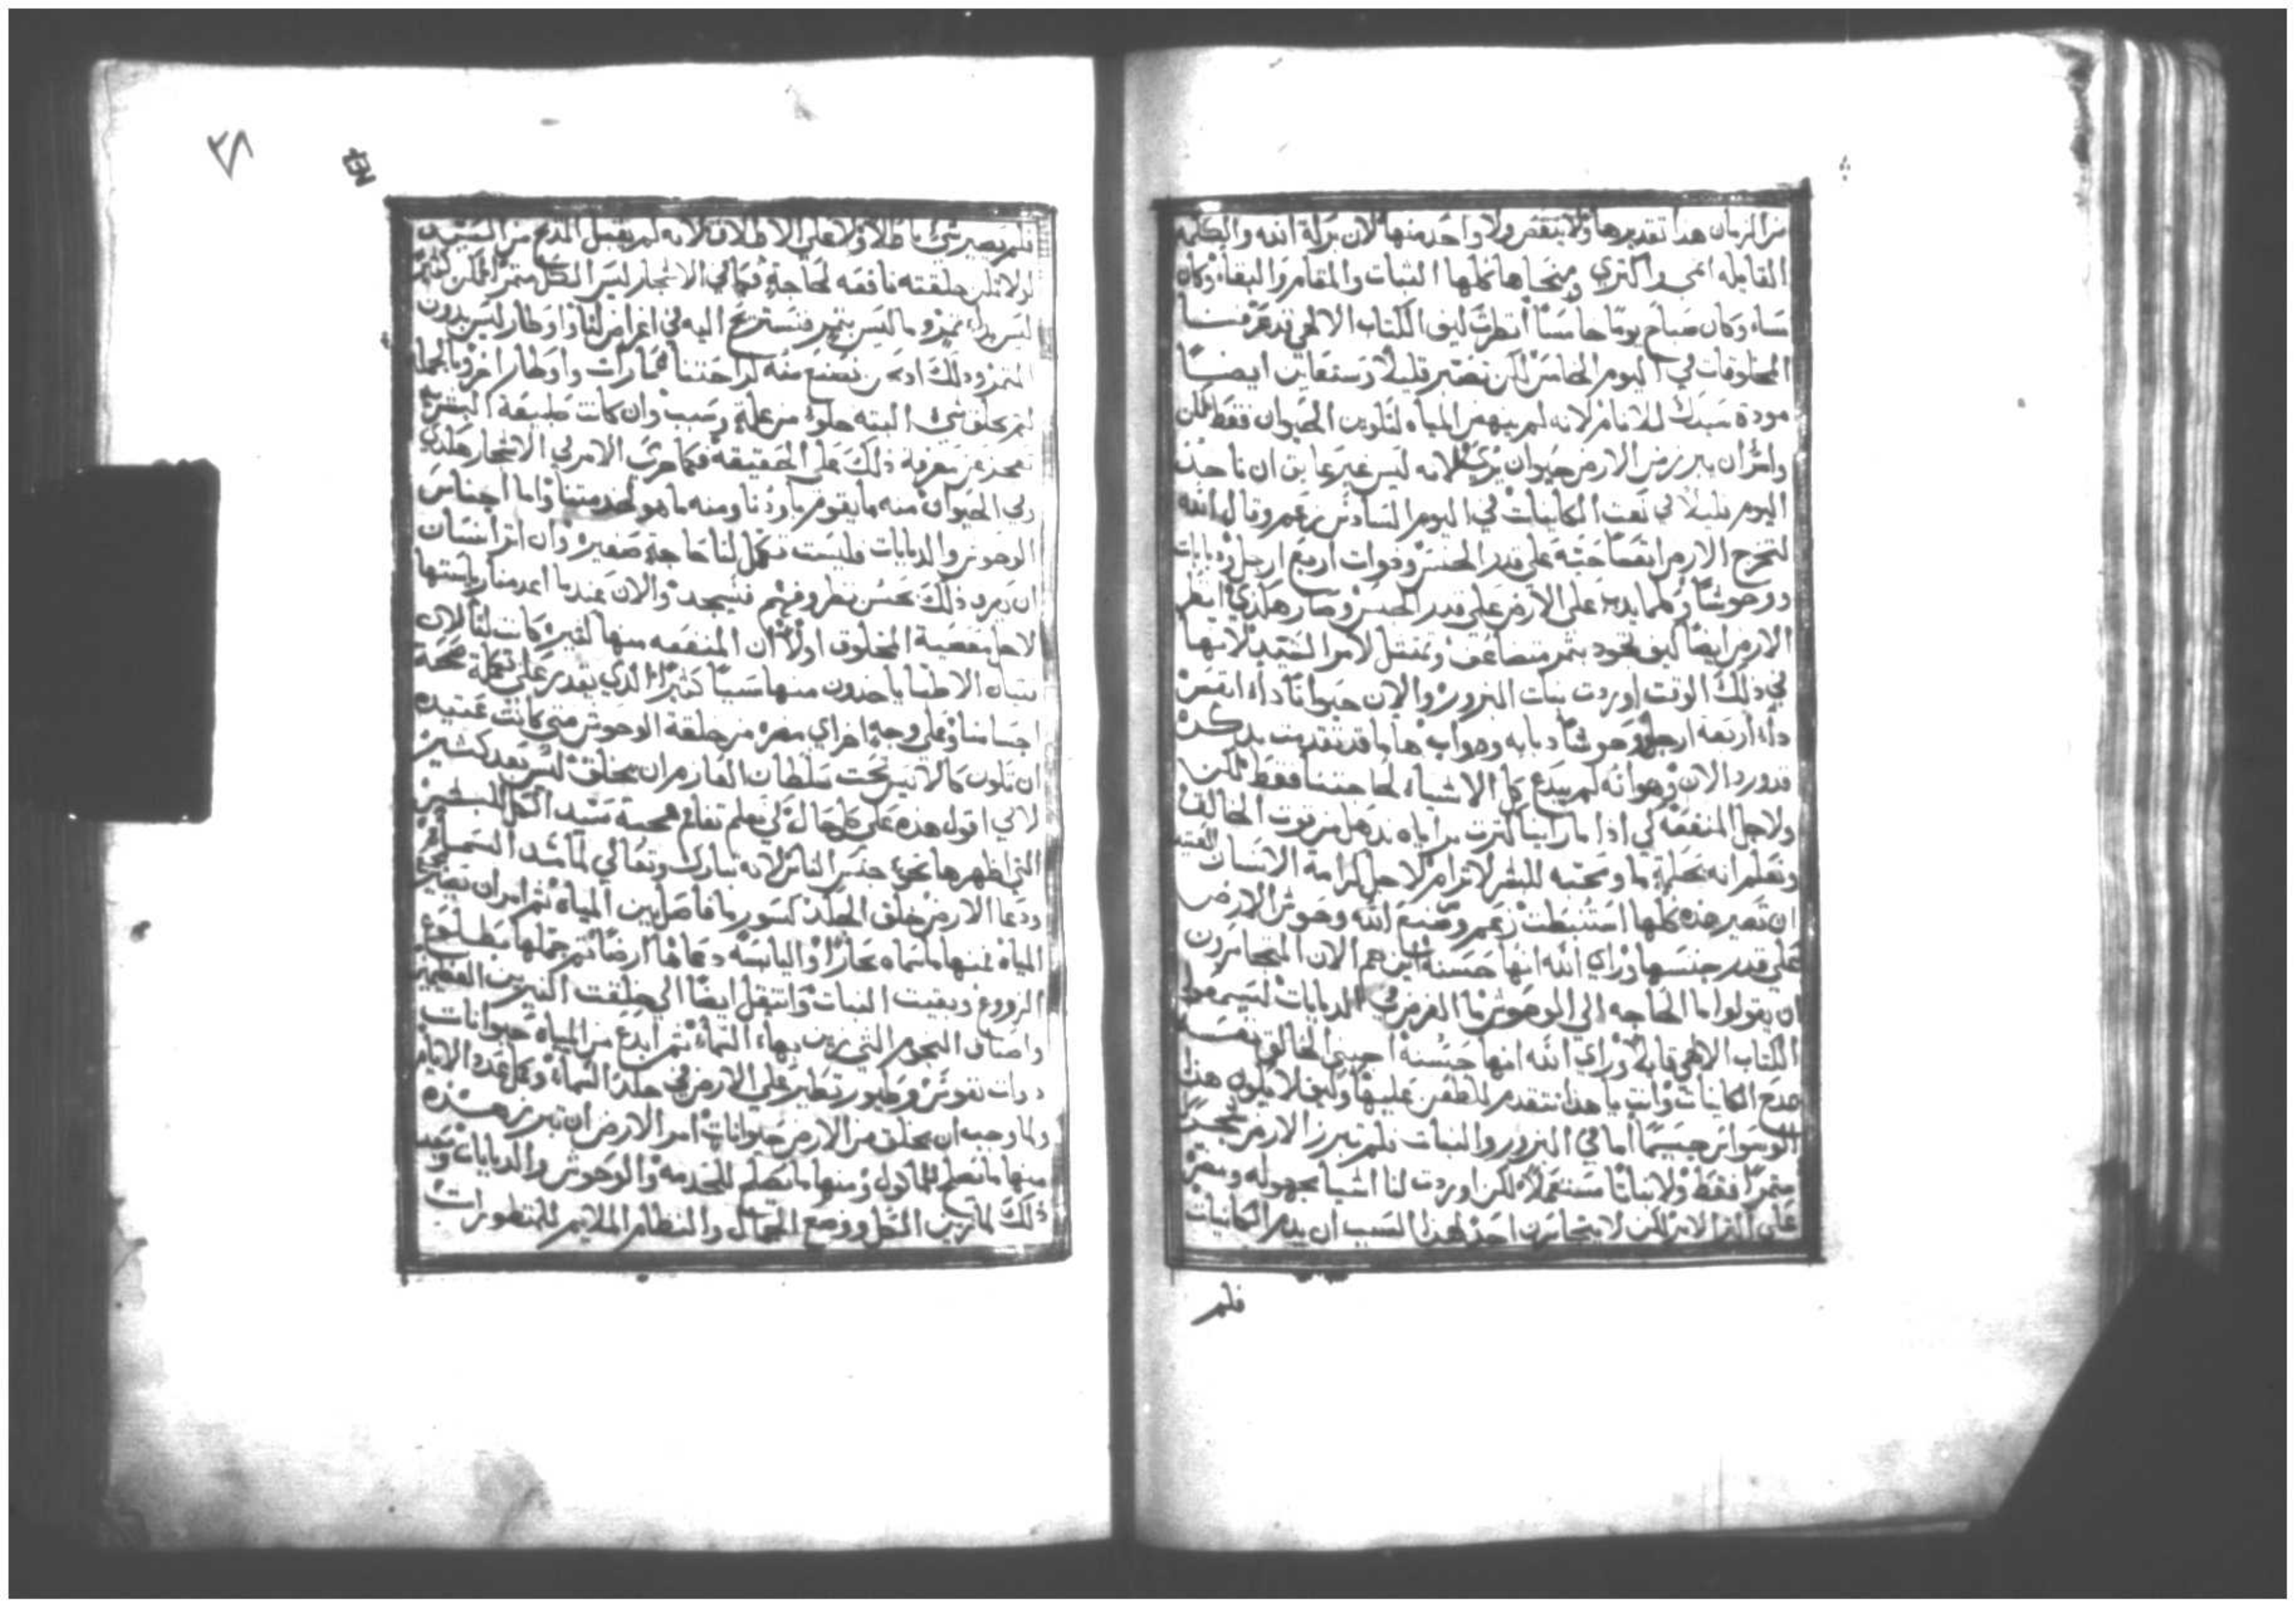 من الزمان هذا تقديرها ولا ينقص ولا واحد منها لان بركة الله والكلمه
القايله انمي واكثري ومنحاها كلها الثبات والمقام والبقاء وكان
مساء وكان صباح يومًا خامسًا انظرت كيف الكتاب الالهي قد عرفنا
المخلوقات في اليوم الخامس لكن نصبر قليلًا وستعاين ايضًا
مودة سيدك للانام لانه لم ينهض المياه لتكوين الحيوان فقط لكن
وامر ان يبرز من الارض حيوان بري لانه ليس غير عابق ان ناخذ
اليوم قليلًا في نعت الكاينات في اليوم السادس زعم وقال الله
لتخرج الارض انفسًا حية على قدر الجنس وذوات اربع ارجل ودبابات
ووحوشًا وكلما يدب على الارض على قدر الجنس وصار هكذي انظر
الارض ايضًا كيف تجود بثمر متضاعف وتمتثل لامر السيد لانها
في ذلك الوقت اوردت نبات البزور والان حيوانًا ذا انفس
ذا اربعة ارجل ووحوشًا دبابه وهوام ها ما قد تقدمت بذكره
قد ورد الان وهو انه لم يبدع كل الاشياء لحاجتنا فقط لكن
ولاجل المنفعه كي اذا ما راينا كثرت براياه نذهل من قوت الخالق
ونعلم انه بحكمة ما ومحبه للبشر لا ترام لاجل كرامة الانسان العتيد
ان تصير هذه كلها استنبطت زعم وصنع الله وحوش الارض
على قدر جنسها وراي الله انها حسنة اين هم الان المتجاسرون
ان يقولوا ما الحاجه الى الوحوش ما الغرض في الدبابات ليسمعوا
الكتاب الالهي قايلًا وراي الله انها حسنة اجبني الخالق نفسه
مدح الكاينات وانت يا هذا تتقدم للطعن عليها وكيف لا يكون هذا
الوسواس جسيمًا اما في البزور والنبات فلم تبرز الارض شجرًا
مثمرًا فقط ولا نباتًا مستعملًا لكن اوردت لنا اشيا مجهوله ومضره
على اكثر الامر لكن لا يتجاسرن احد لهذا السبب ان يذم الكاينات
فلم
٢٨
فلم يصير شي باطلًا ولا على الاطلاق لانه لم يقبل المدح من السيد
لولا تكن خلقته نافعه لحاجة فكما في الاشجار ليس الكل مثمر لكن كثير
ليس بذي ثمر وما ليس بثمر فنستريح اليه في اغراض لنا واوطار ليس بدون
المثمر وذلك اذ نحن نصنع منه لراحتنا عمارات واوطار اخر وبالجملة
لم يخلق شي البته خلوًا من علة وسبب وان كانت طبيعة البشر
تعجز عن معرفة ذلك على الحقيقه فكما جرى الامر في الاشجار هكذي
وفي الحيوان منه ما يقوم باودنا ومنه ما هو لخدمتنا واما اجناس
الوحوش والدبابات فليست تكمل لنا حاجة صغيره وان اثر انسان
ان يعرف ذلك بحسن نظر وفهم فسيجد والان عندما اعدمنا رياستها
لاجل معصية المخلوق اولًا ان المنفعه منها كثيره كانت لنا لان
بنيان الاطبا ياخذون منها شيًا كثيرًا الذي يقدر على تكملة صحة
اجسامنا وعلى وجه اخر اي مضره من خلقة الوحوش متى كانت عتيده
ان تكون كالانيس تحت سلطان العازم ان يخلق ليس بعد كثير
لاكي اقول هذه على كل حال كي نعلم تعاظم محبة سيد الكل للبشر
التي اظهرها نحو جنس الناس لانه تبارك وتعالى لما شد السماء
ودعا الارض خلق الجلد كسور ما فاصل بين المياه ثم امر ان تصير
المياه فمنها ما سماه بحارًا واليابسه دعاها ارضًا ثم جملها بطلوع
الزروع وبقيت النبات وانتقل ايضًا الى خلقت النيرين العظيمين
واصناف النجوم التي زين بهاء السماء ثم ابدع من المياه حيوانات
ذوات نفوس وطيور تطير على الارض في جلد السماء وكمل عدد الايام
ولما وجب ان يخلق من الارض حيوانات امر الارض ان تبرز هذه
منها ما تصلح للماكول ومنها ما تصلح للخدمه والوحوش والدبابات وبعد
ذلك لما زين الكل ووضع الجمال والنظام الملايم للمنظورات